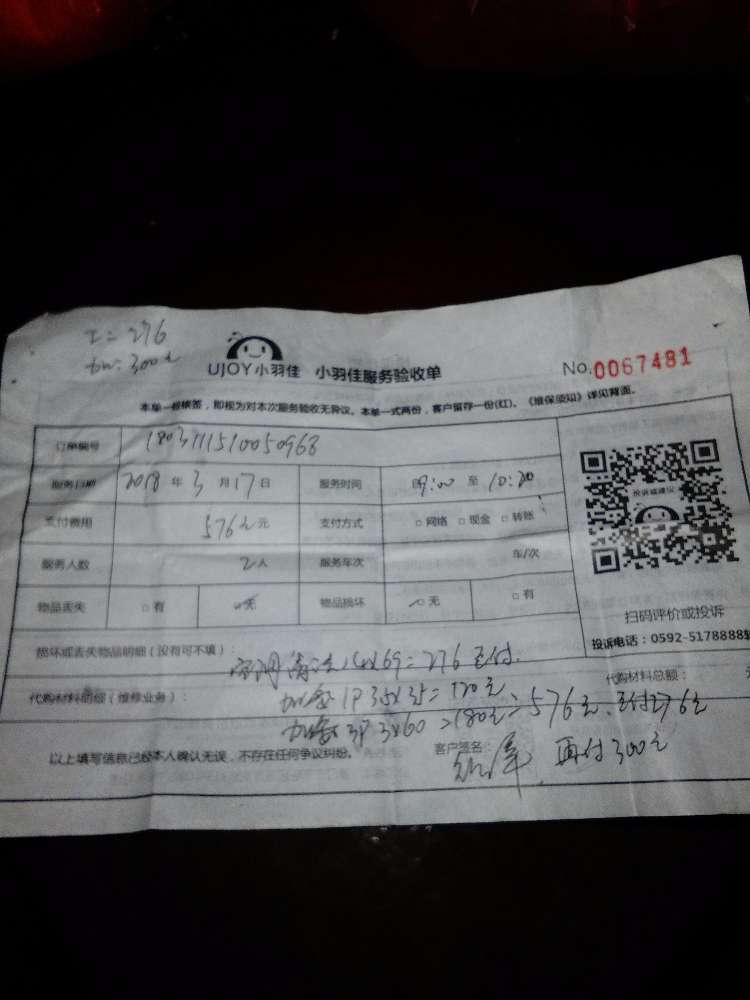 工=276
加:300元
UJOY小羽佳 小羽佳服务验收单 No.0067481
本单一经核签，即视为对本次服务验收无异议。本单一式两份，客户留存一份(红)。《维保须知》详见背面。
订单编号
服务日期 2018 年 3 月 17 日 服务时间 9:00 至 10:20
支付费用 576元 元 支付方式 □网络 □现金 □转账
服务人数 2人 服务车次 车/次
物品丢失 □有 □无 物品损坏 □无 □有
投诉或建议
扫码评价或投诉
投诉电话：0592-5178888
损坏或丢失物品明细（没有可不填）：
空调清洗 4x69=276 已付.
代购材料明细（维修业务）： 代购材料总额： 元
加氟 1P =120元
加氟 3P 3x60 =180元 =576元. 已付276元
以上填写信息已经本人确认无误，不存在任何争议纠纷。 客户签名：
再付300元